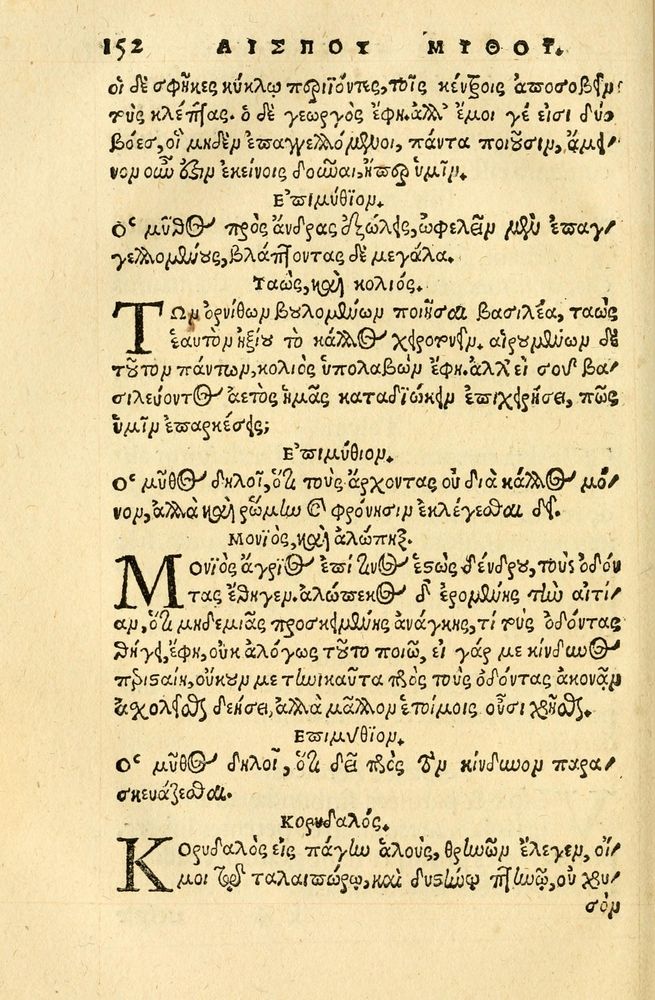 152 ΑΙΣΠΟΥ ΜΥΘΟΙ.
οἱ δὲ σφῆκες κύκλῳ περιϊόντες, τοῖς κέντροις ἀποσοβεῖν
τοὺς κλέπτας. ὁ δὲ γεωργὸς ἔφη. ἀλλ' ἔμοι γέ εἰσι δύο
βόες, οἳ μηδὲν ἐπαγγελλόμενοι, πάντα ποιοῦσιν, ἄμει-
νον οὖν ἐστιν ἐκείνοις δοῦναι, ἤπερ ὑμῖν.
Ἐπιμύθϊον.
Ὁ μῦθος πρὸς ἄνδρας ἐξώλεις, ὠφελεῖν μὲν ἐπαγ-
γελλομένους, βλάπτοντας δὲ μεγάλα.
Ταὼς, καὶ κολιός.
Τῶν ὀρνίθων βουλομένων ποιῆσαι βασιλέα, ταὼς
ἑαυτὸν ἠξίου τὸ κάλλος χειροτονεῖν. αἱρουμένων δὲ
τοῦτον πάντων, κολιὸς ὑπολαβὼν ἔφη. ἀλλ' εἰ σοῦ βα-
σιλεύοντος ἀετὸς ἡμᾶς καταδϊώκειν ἐπιχειρήσει, πῶς
ὑμῖν ἐπαρκέσεις;
Ἐπιμύθιον.
Ὁ μῦθος δηλοῖ, ὅτι τοὺς ἄρχοντας οὐ διὰ κάλλος μό-
νον, ἀλλὰ καὶ ῥώμην καὶ φρόνησιν ἐκλέγεσθαι δεῖ.
Μονϊὸς, καὶ ἀλώπηξ.
Μονϊὸς ἄγρϊος ἐπί τινος ἑστὼς δένδρου, τοὺς ὀδόν
τας ἔθηγεν. ἀλώπεκος δ' ἐρομένης τὴν αἰτί-
αν, ὅτι μηδεμιᾶς προσκειμένης ἀνάγκης, τί τοὺς ὀδόντας
θήγει, ἔφη, οὐκ ἀλόγως τοῦτο ποιῶ, εἰ γάρ με κίνδυνος
περισταίη, οὐκοῦν με τηνικαῦτα περὶ τοὺς ὀδόντας ἀκονᾷν
ἀσχολεῖσθαι δεήσει, ἀλλὰ μᾶλλον ἑτοίμοις οὖσι χρῆσθαι.
Ἐπιμύθϊον.
Ὁ μῦθος δηλοῖ, ὅτι δεῖ πρὸς τὸν κίνδυνον παρα-
σκευάζεσθαι.
Κορυδαλός.
Κορυδαλὸς εἰς πάγην ἁλοὺς, θρηνῶν ἔλεγεν, οἴ-
μοι τῷ ταλαιπώρῳ, καὶ δυστήνῳ πτηνῷ, οὐ χρυ-
σὸν